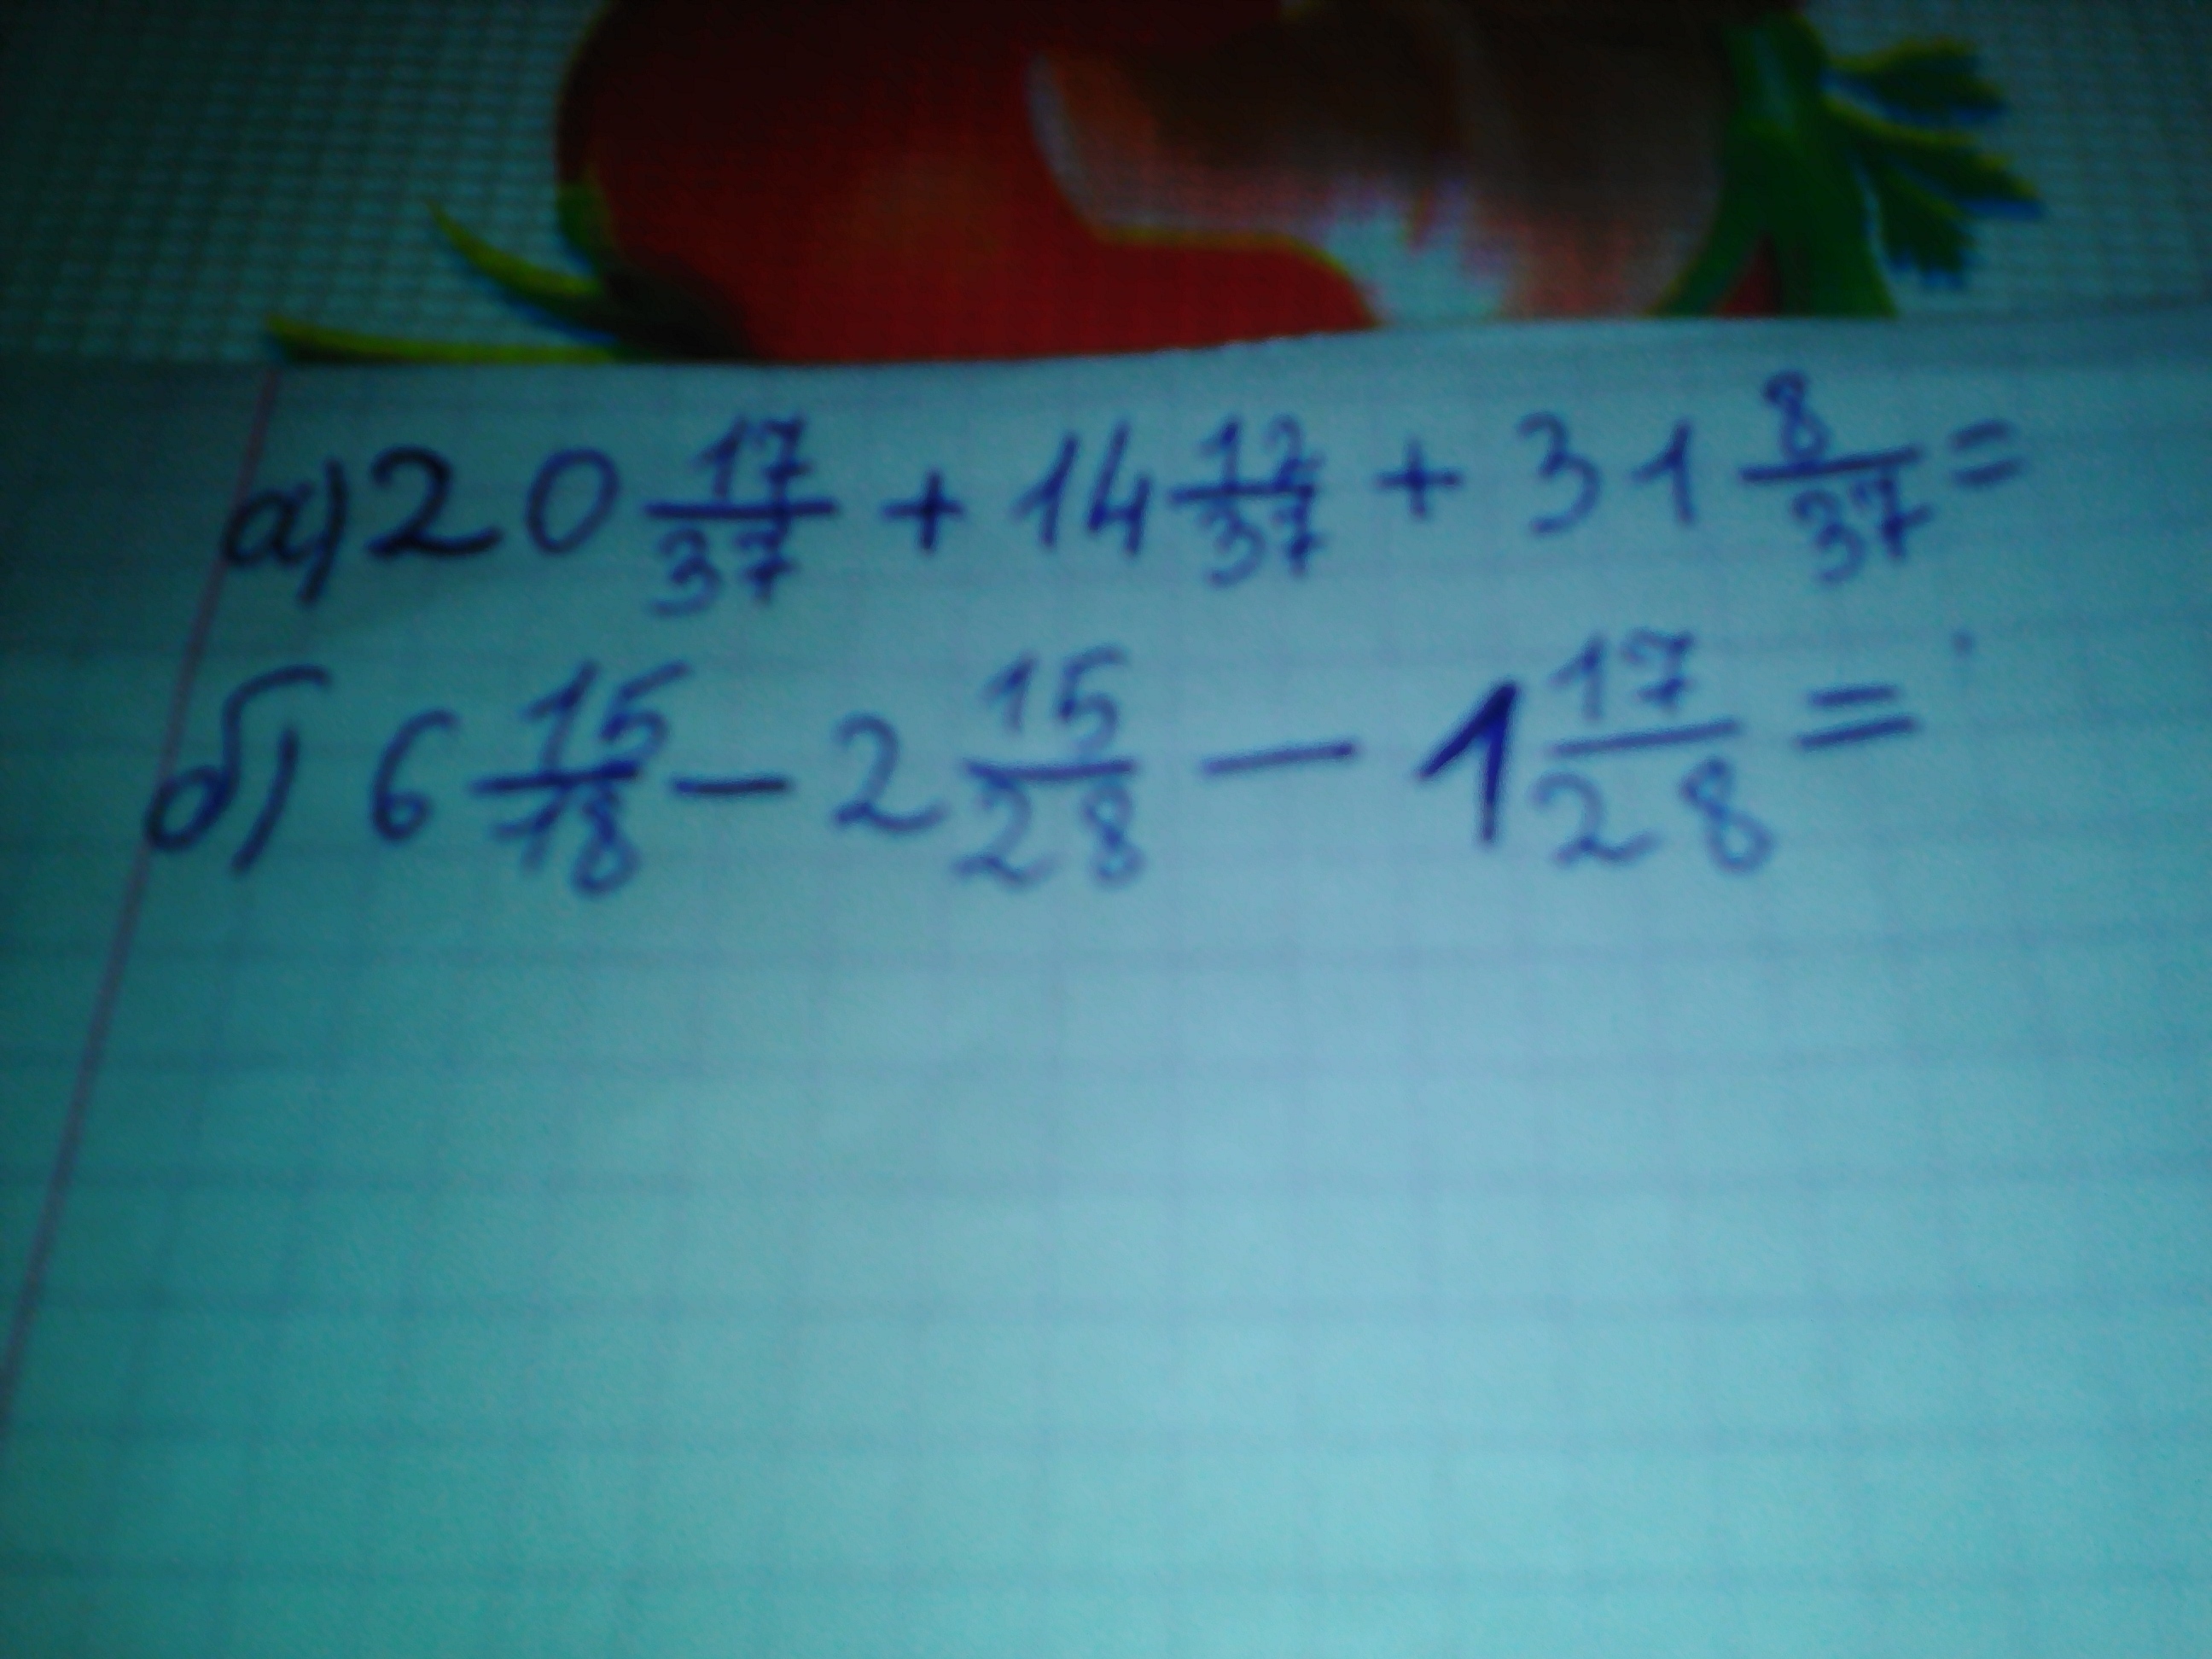 а) 20 17/37 + 14 12/37 + 31 8/37 =
б) 6 15/18 - 2 15/28 - 1 17/28 =